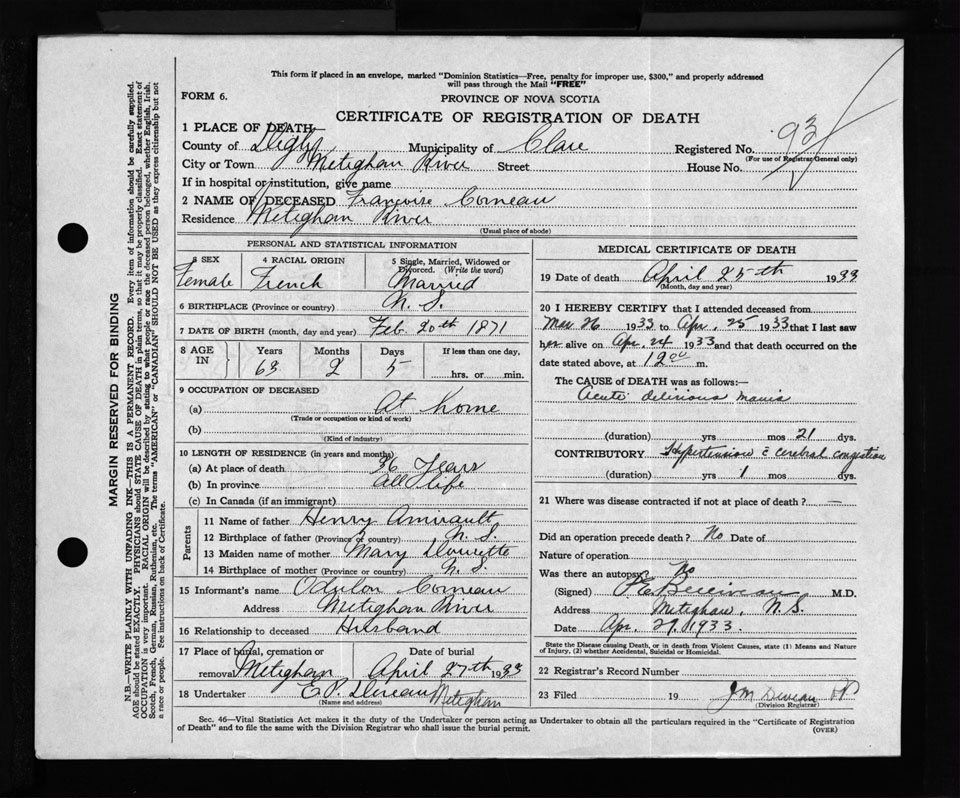 This form if placed in an envelope, marked "Dominion Statistics—Free, penalty for improper use, $300," and properly addressed
will pass through the Mail "FREE"
FORM 6.
PROVINCE OF NOVA SCOTIA
CERTIFICATE OF REGISTRATION OF DEATH
1 PLACE OF DEATH—
County of Digby Municipality of Clare Registered No. 93
(For use of Registrar General only)
City or Town Metighan River Street House No.
If in hospital or institution, give name
2 NAME OF DECEASED Francoise Comeau
Residence Metighan River
(Usual place of abode)
PERSONAL AND STATISTICAL INFORMATION
3 SEX 4 RACIAL ORIGIN 5 Single, Married, Widowed or Divorced. (Write the word)
Female French Married
6 BIRTHPLACE (Province or country) N. S.
7 DATE OF BIRTH (month, day and year) Feb. 20th 1871
8 AGE IN Years Months Days If less than one day,
63 2 5 hrs. or min.
9 OCCUPATION OF DECEASED
(a) At home
(Trade or occupation or kind of work)
(b)
(Kind of industry)
10 LENGTH OF RESIDENCE (in years and months)
(a) At place of death 36 Years
(b) In province all life
(c) In Canada (if an immigrant)
Parents
11 Name of father Henry Amirault
12 Birthplace of father (Province or country) N. S.
13 Maiden name of mother Mary Doucette
14 Birthplace of mother (Province or country) N. S.
15 Informant's name Odulon Comeau
Address Metighan River
16 Relationship to deceased Husband
17 Place of burial, cremation or removal Metighan Date of burial April 27th 1933
18 Undertaker E. P. Deveau Metighan
(Name and address)
MEDICAL CERTIFICATE OF DEATH
19 Date of death April 25th 1933
(Month, day and year)
20 I HEREBY CERTIFY that I attended deceased from
Mar 26 1933 to Apr. 25 1933 that I last saw
her alive on Apr. 24 1933 and that death occurred on the
date stated above, at 12 00 m.
The CAUSE OF DEATH was as follows:—
Acute delirious mania
(duration) yrs mos 21 dys.
CONTRIBUTORY Hypertension & cerebral congestion
(duration) yrs 1 mos dys.
21 Where was disease contracted if not at place of death? —
Did an operation precede death? No Date of
Nature of operation
Was there an autopsy No
(Signed) M.D.
Address Metighan, N. S.
Date Apr. 27, 1933.
State the Disease causing Death, or in death from Violent Causes, state (1) Means and Nature
of Injury, (2) whether Accidental, Suicidal or Homicidal.
22 Registrar's Record Number
23 Filed 19 J M Deveau
(Division Registrar)
Sec. 46—Vital Statistics Act makes it the duty of the Undertaker or person acting as Undertaker to obtain all the particulars required in the "Certificate of Registration
of Death" and to file the same with the Division Registrar who shall issue the burial permit.
(OVER)
MARGIN RESERVED FOR BINDING
N.B.—WRITE PLAINLY WITH UNFADING INK—THIS IS A PERMANENT RECORD. Every item of information should be carefully supplied.
AGE should be stated EXACTLY. PHYSICIANS should STATE CAUSE OF DEATH in plain terms, so that it may be properly classified. Exact statement of
OCCUPATION is very important. RACIAL ORIGIN will be described by stating to what people or race the deceased person belonged, whether English, Irish,
Scotch, French, German, Russian, Ruthenian, etc. The terms "AMERICAN" or "CANADIAN" SHOULD NOT BE USED as they express citizenship but not
a race or people. See instructions on back of Certificate.